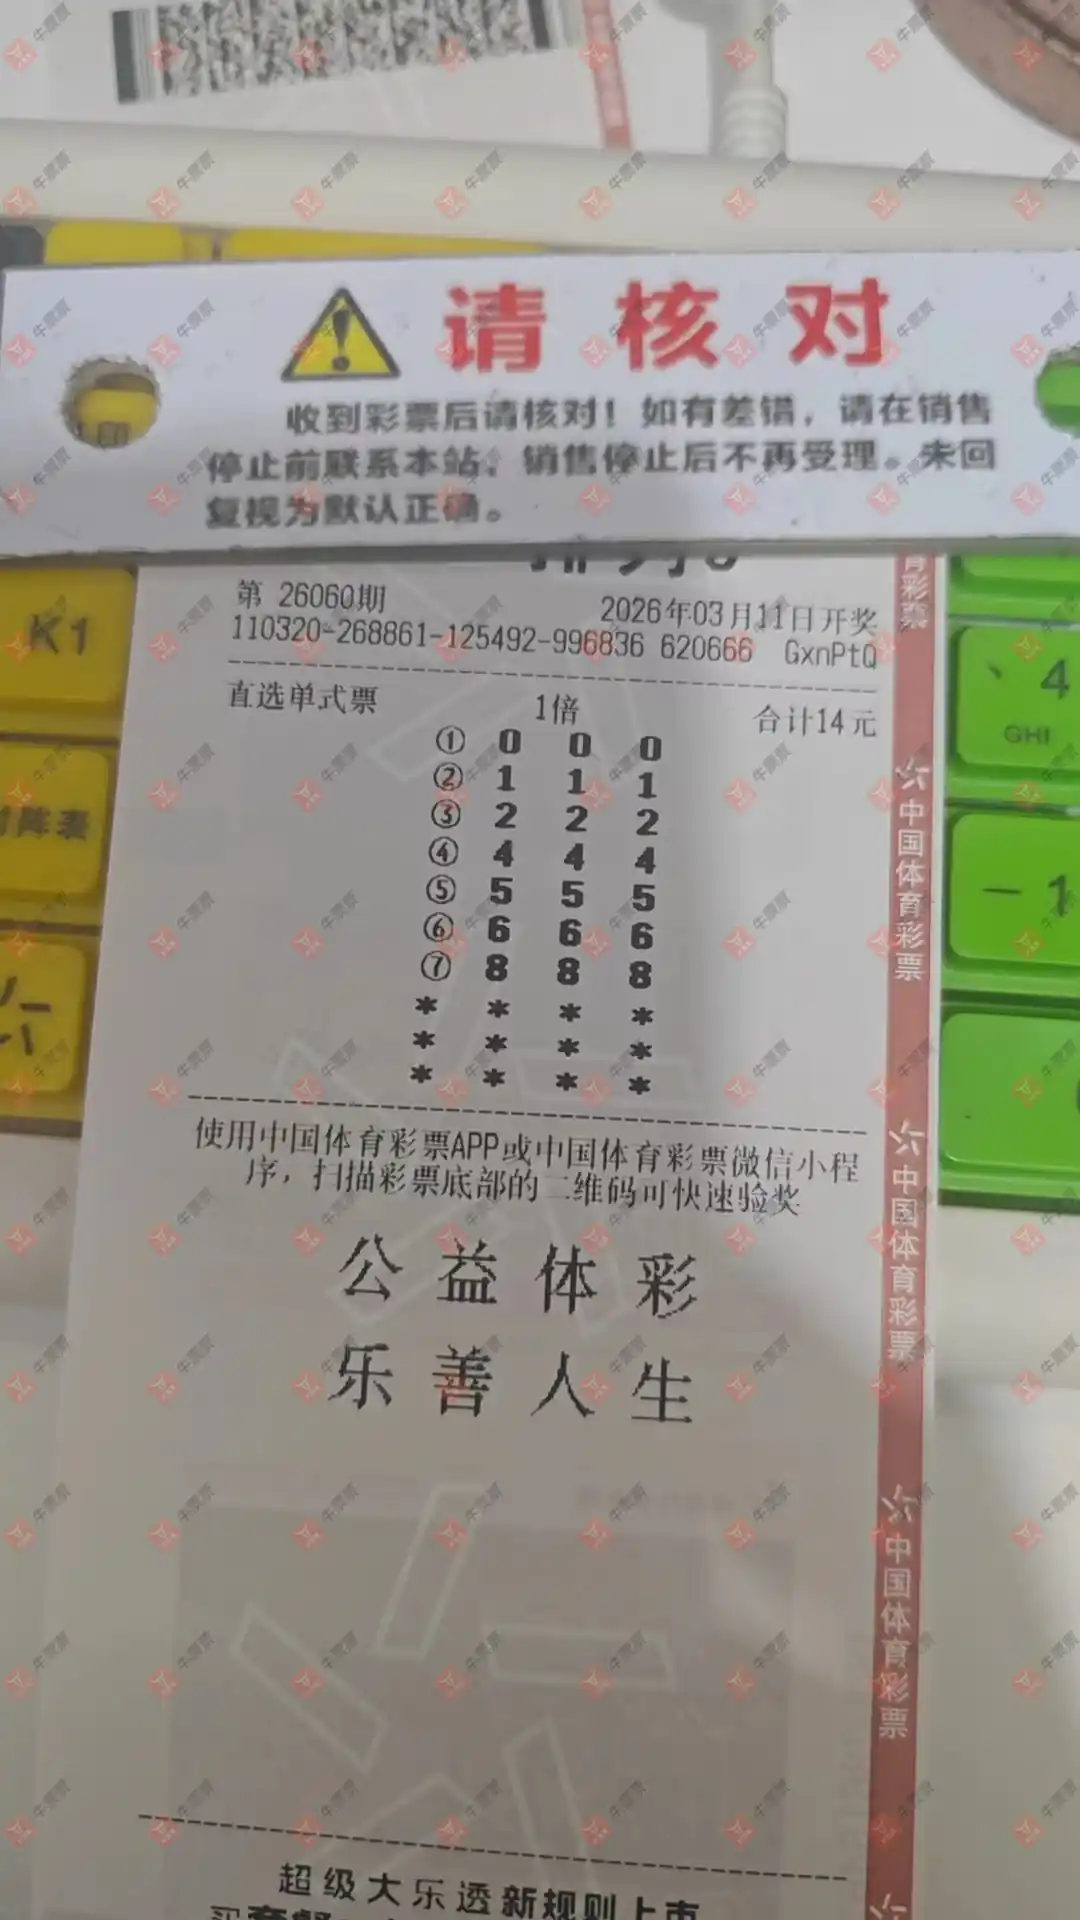 请核对
收到彩票后请核对！如有差错，请在销售
停止前联系本站，销售停止后不再受理。未回
复视为默认正确。
第 26060期
2026年03月11日开奖
110320-268861-125492-996836 620666 GxnPtQ
直选单式票 1倍 合计14元
① 0 0 0
② 1 1 1
③ 2 2 2
④ 4 4 4
⑤ 5 5 5
⑥ 6 6 6
⑦ 8 8 8
* * * *
* * * *
* * * *
使用中国体育彩票APP或中国体育彩票微信小程
序，扫描彩票底部的二维码可快速验奖
公益体彩
乐善人生
超级大乐透新规则上市
育彩票
中国体育彩票
中国体育彩票
中国体育彩票
K1
阵表
4
GHI
-1
牛票票